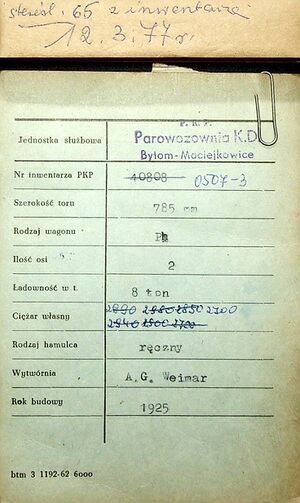 skreśl. 65 z inwentarza
12.3.77r.
P. K. P.
Jednostka służbowa Parowozownia K.D.
Bytom-Maciejkowice
Nr inwentarza PKP 40808 0507-3
Szerokość toru 785 mm
Rodzaj wagonu
Ilość osi 2
Ładowność w t. 8 ton
Ciężar własny 2890 2980 2850 2700
2940 2700
Rodzaj hamulca ręczny
Wytwórnia A.G. Weimar
Rok budowy 1925
btm 3 1192-62 6000